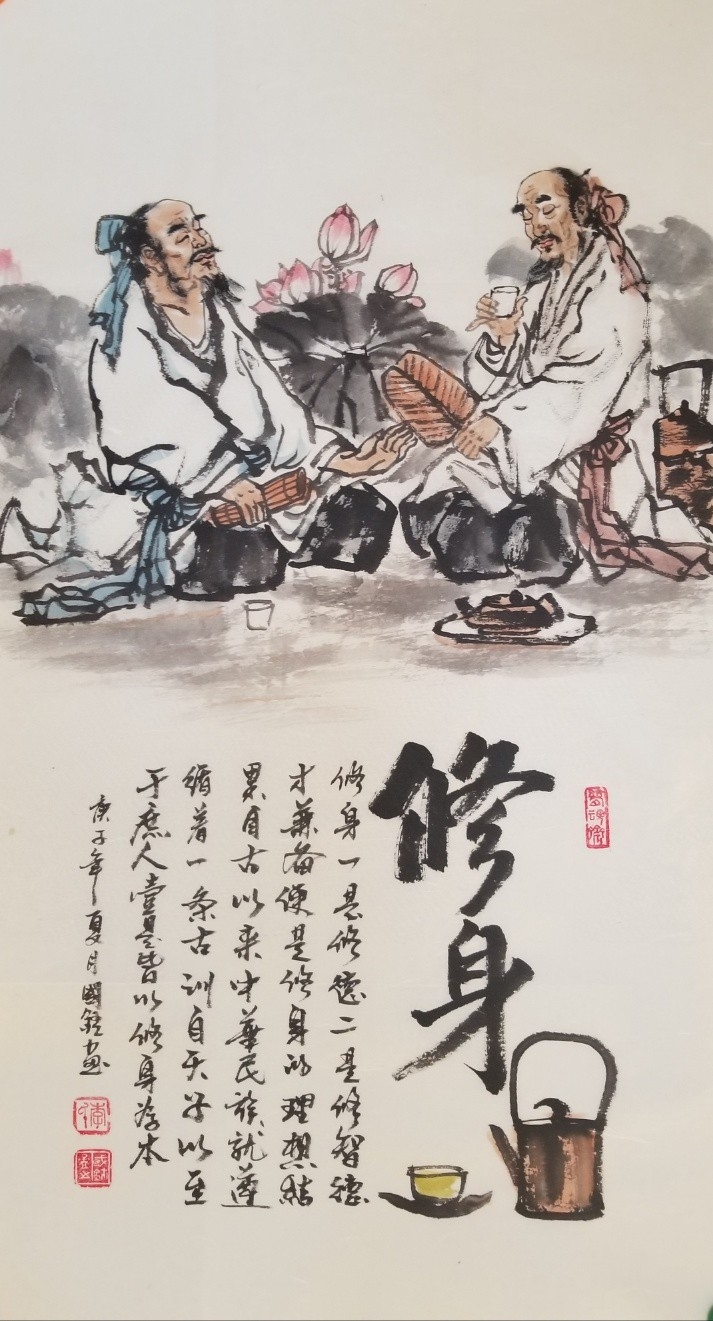 修身
修身一是修德二是修智德
才兼备便是修身的理想结
果自古以来中華民族就遵
循着一条古训自天子以至
于庶人壹是皆以修身为本
庚子年夏月國画
李